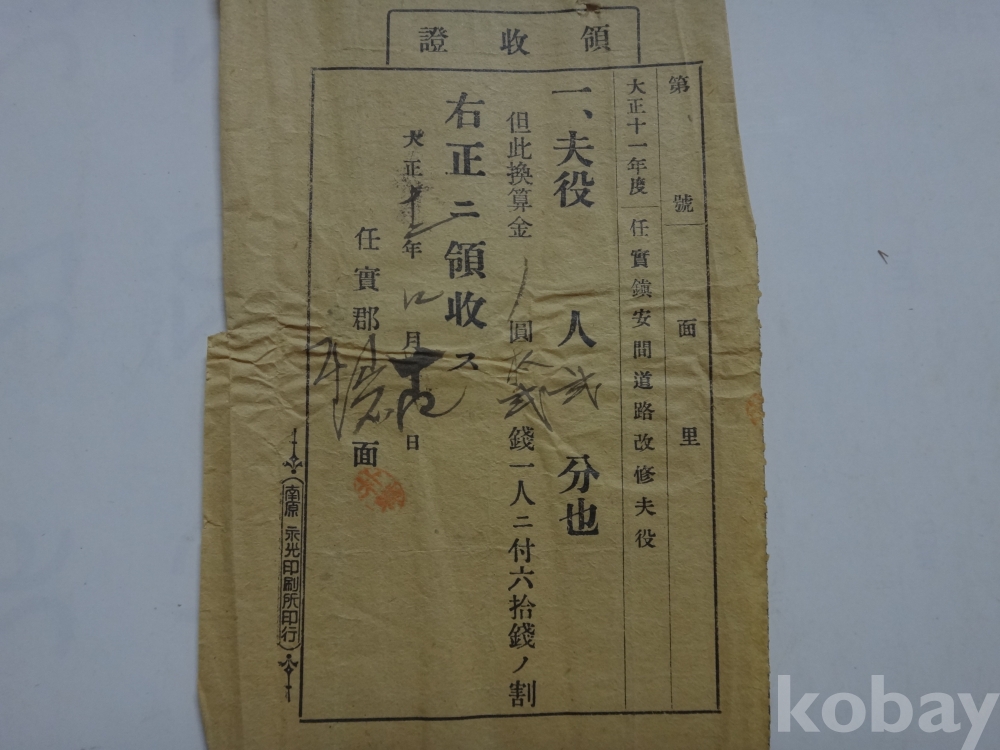 領收證
第 號 面 里
大正十一年度 任實鎭安間道路改修夫役
一、夫役 人 弐 分也
但此換算金 圓 拾弐 錢一人ニ付六拾錢ノ割
右正ニ領收ス
大正十一年 月 日
任實郡 面
南原 永光印刷所印行
kobay